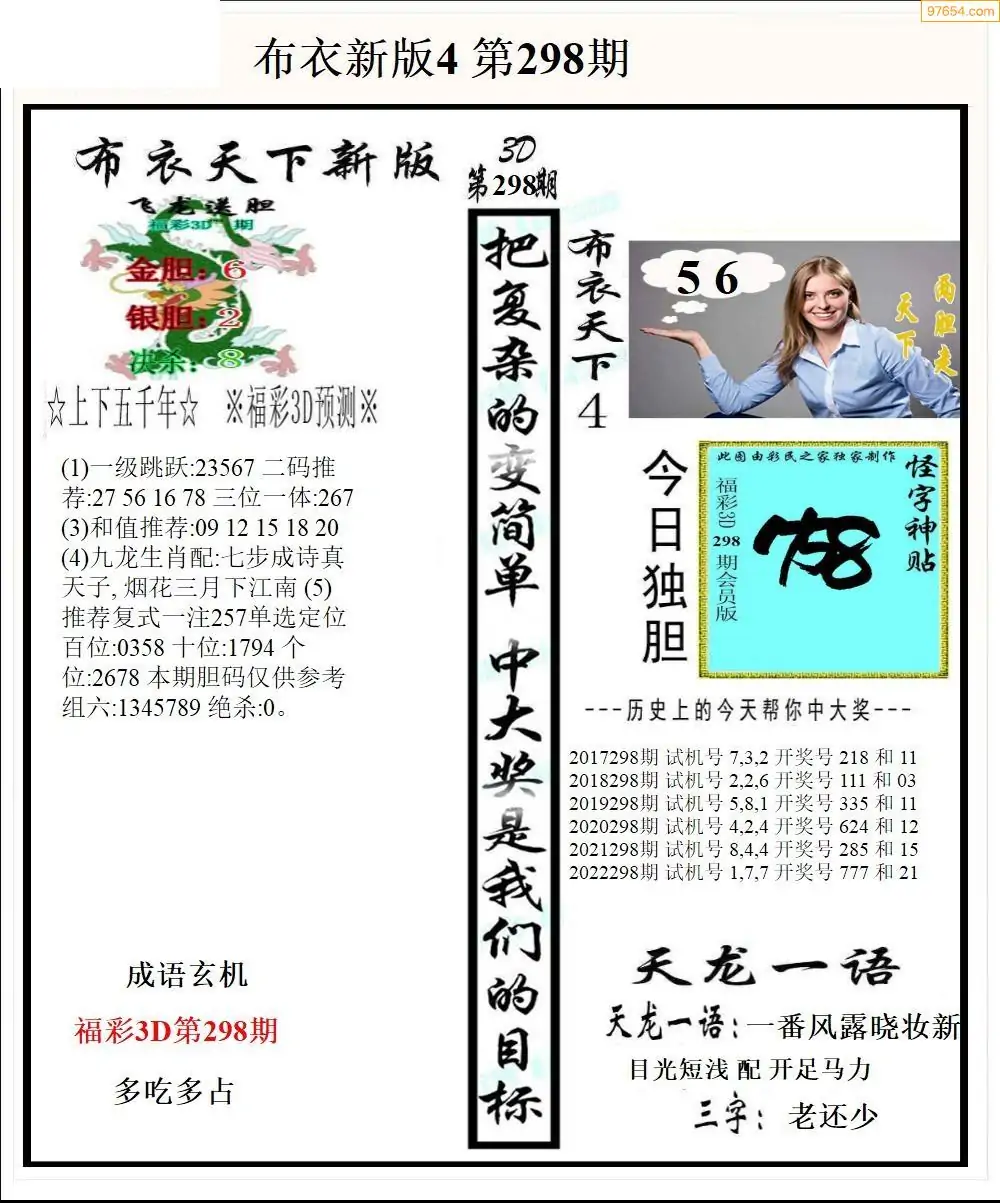 97654.com
布衣新版4 第298期
布衣天下新版
飞龙送胆
福彩3D 期
金胆：6
银胆：2
决杀：8
☆上下五千年☆ ※福彩3D预测※
(1)一级跳跃:23567 二码推
荐:27 56 16 78 三位一体:267
(3)和值推荐:09 12 15 18 20
(4)九龙生肖配:七步成诗真
天子, 烟花三月下江南 (5)
推荐复式一注257单选定位
百位:0358 十位:1794 个
位:2678 本期胆码仅供参考
组六:1345789 绝杀:0。
成语玄机
福彩3D第298期
多吃多占
3D
第298期
把复杂的变简单 中大奖是我们的目标
布衣天下4
5 6
两胆走
天下
今日独胆
此图由彩民之家独家制作
怪字神贴
福彩3D 298 期会员版
758
---历史上的今天帮你中大奖---
2017298期 试机号 7,3,2 开奖号 218 和 11
2018298期 试机号 2,2,6 开奖号 111 和 03
2019298期 试机号 5,8,1 开奖号 335 和 11
2020298期 试机号 4,2,4 开奖号 624 和 12
2021298期 试机号 8,4,4 开奖号 285 和 15
2022298期 试机号 1,7,7 开奖号 777 和 21
天龙一语
天龙一语：一番风露晓妆新
目光短浅 配 开足马力
三字： 老还少